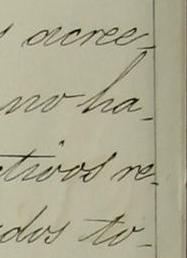 s acree-
no ha-
tivos re-
dos to-